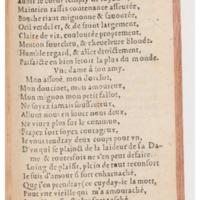 Maintien rassis contenance asseurée,
Bouche riant mignonne & sauourée,
Oeil verdelet, & de front largement,
Claire de vis, coulourée proprement,
Menton fourchu, & cheuelure blonde.
Humble regard, & alleé droictement,
Parfaicte en bien seroit la plus du monde.
Vne dame à son amy.
Mon assoté, mon dorelot,
Mon doucinet, mon amoureux,
Mon mignon mon petit fallot,
Ne soyez iamais souffreteux,
Allons nous en iouer nous deux,
Ne viuez plus sur le commun,
Frapez fort soyez couragieux,
Ie vous rendray deux coups pour vn,
D'vn qui se plainct de la laideur de sa Da-
me & toutesfois ne s'en peut desfaire.
Loing de plaisir, plein de tout reconfort
Ie suis d'amour si fort enharnaché,
Que i'en prendray (ce cuyday-ie la mort,
Pour vne vieille qui m'a amouraché,